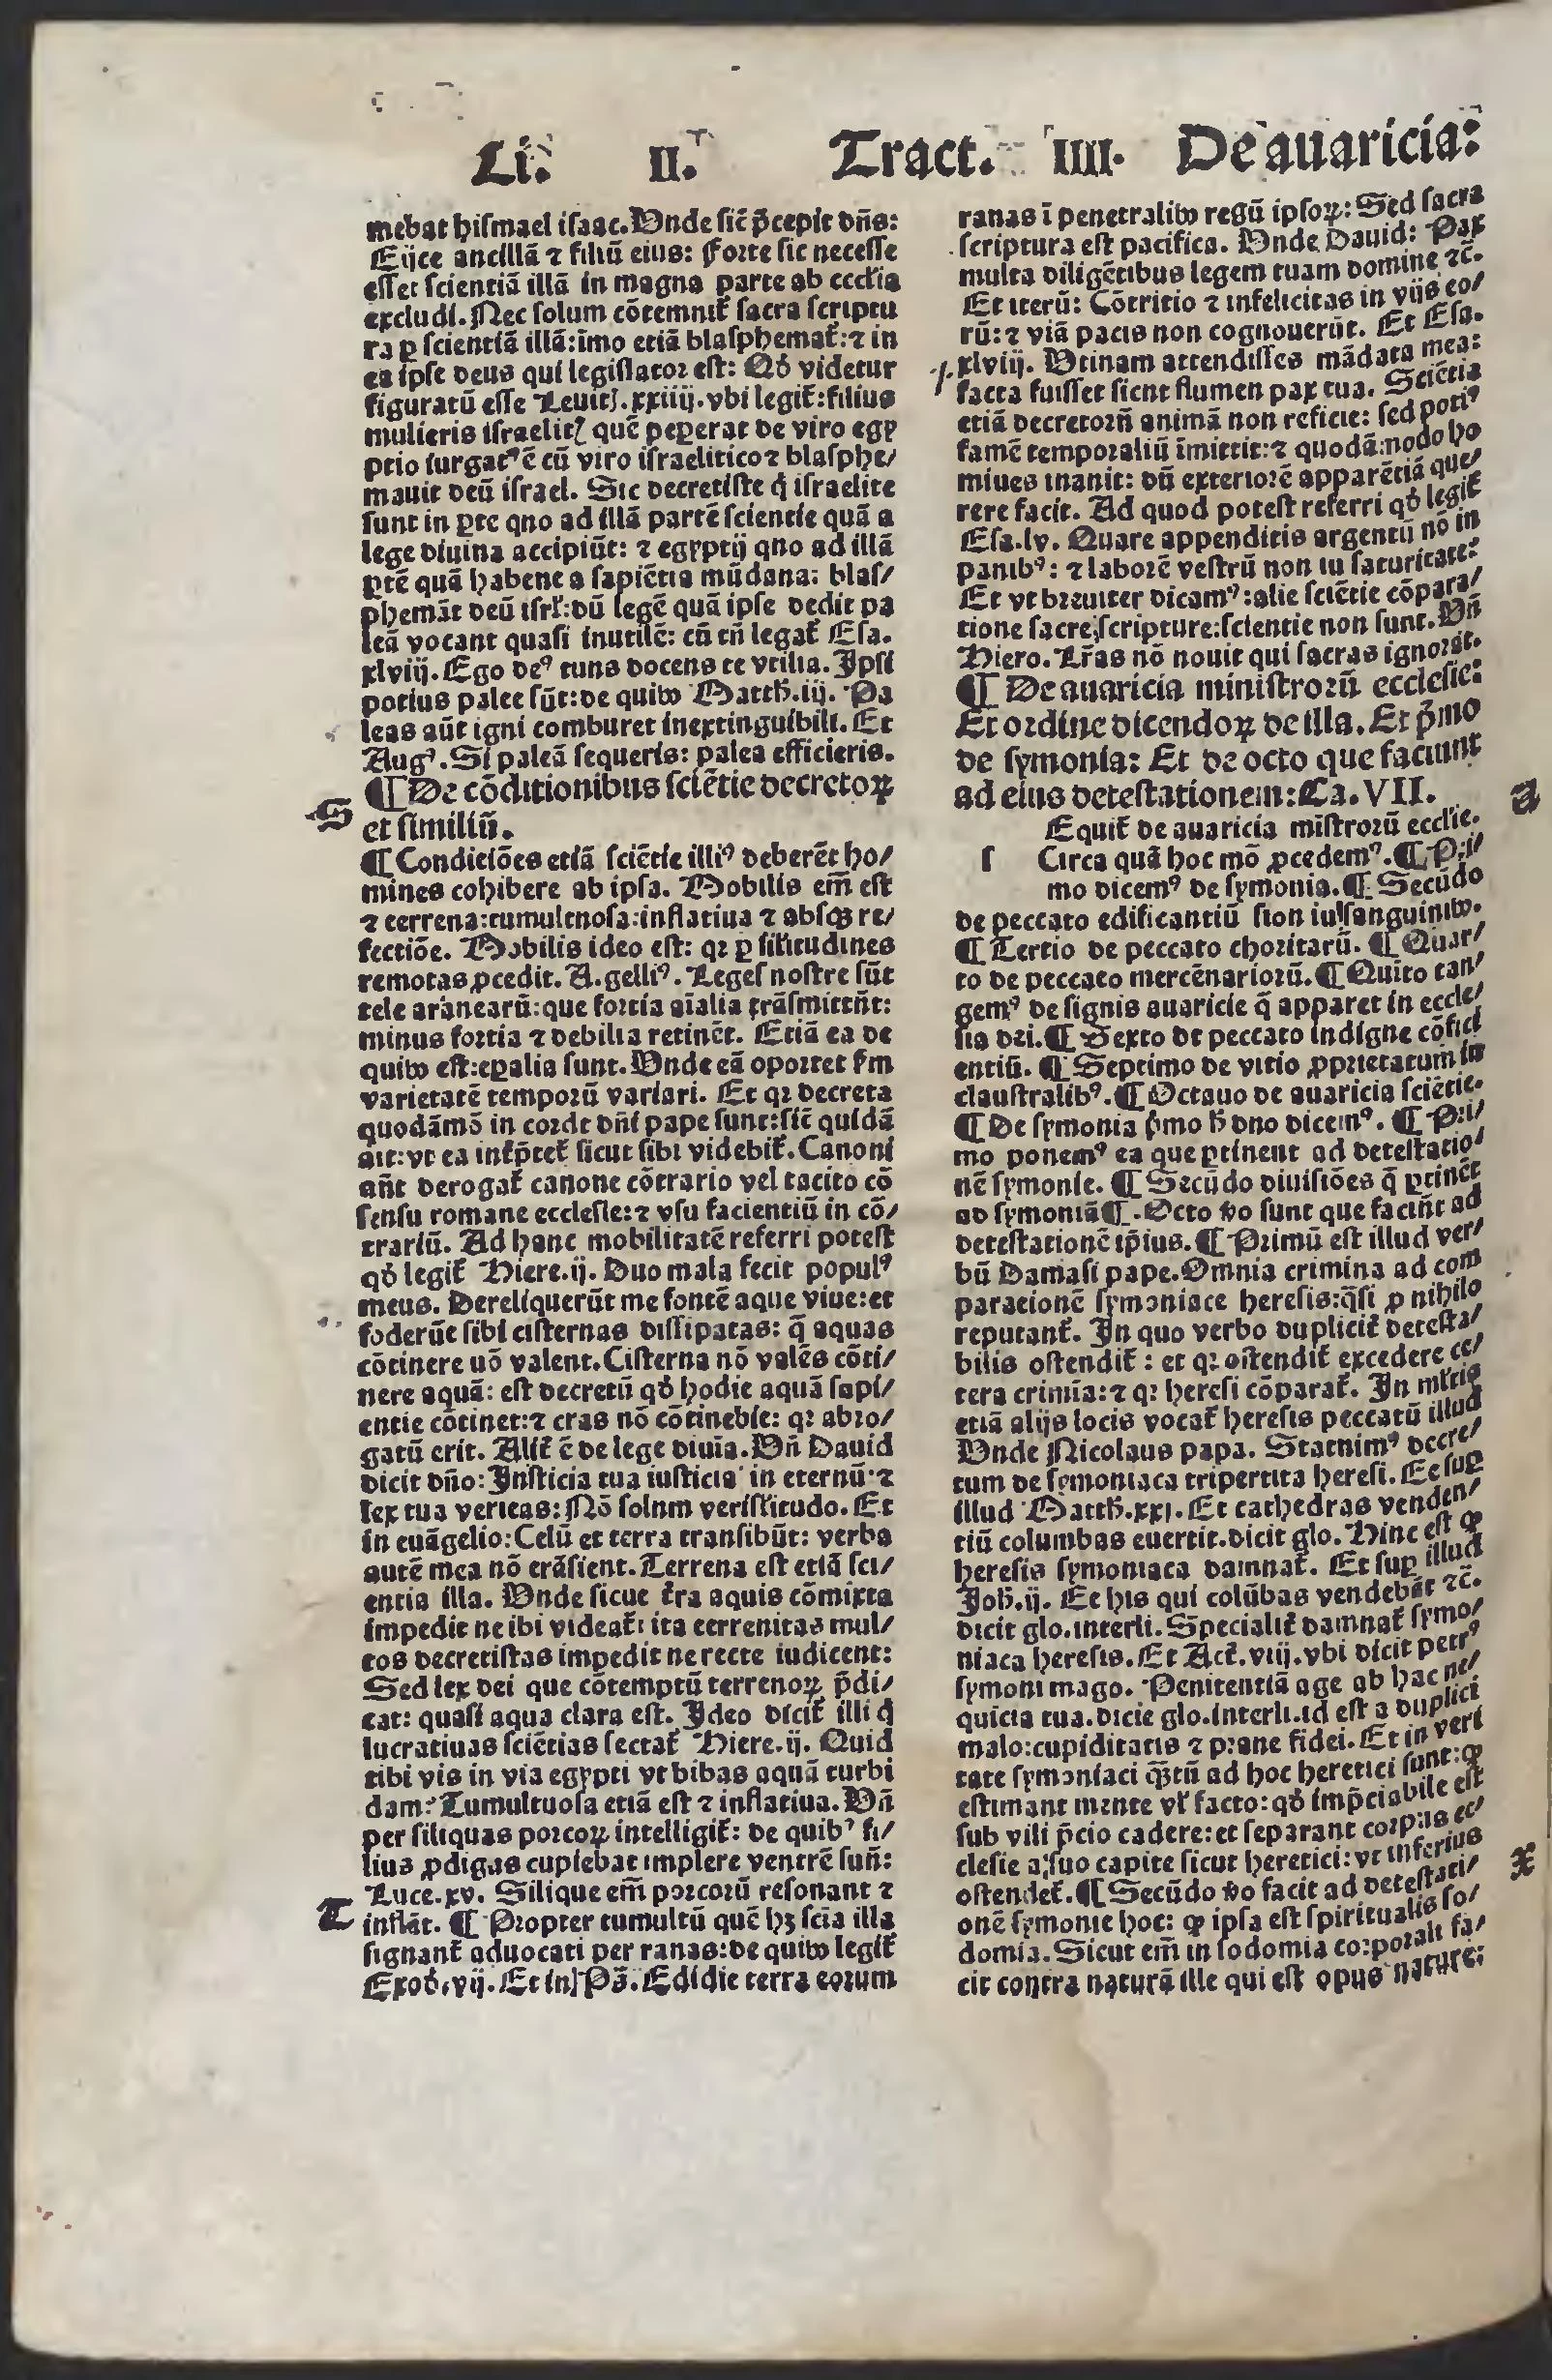 Li. II. Tract. IIII. De auaricia:
mebat hiſmael iſaac. Vnde ſic̄ p̄cepit dn̄s:
Eijce ancillā ⁊ filiū eius: Forte ſic neceſſe
eſſet ſcientiā illā in magna parte ab eccłia
excludi. Nec ſolum cōtemnit᷑ ſacra ſcriptu
ra ꝑ ſcientiā illā: imo etiā blaſphemat᷑: ⁊ in
ea ipſe deus qui legiſlator eſt: Qđ videtur
figuratū eſſe Leuitꝭ. xxiiij. vbi legit᷑: filius
mulieris iſraelitꝭ quē peperat de viro egy
ptio iurgatꝰ ē cū viro iſraelitico ⁊ blaſphe/
mauit deū iſrael. Sic decretiſte q̇ iſraelite
ſunt in ꝑte qno ad illā partē ſcientie quā a
lege diuina accipiūt: ⁊ egyptij qno ad illā
ꝑtē quā habent a ſapiētia mūdana: blaſ/
phemāt deū iſrł: dū legē quā ipſe dedit pa
leā vocant quaſi inutilē: cū tn̄ legat᷑ Eſa.
xlviij. Ego deꝰ tuus docens te vtilia. Ipſi
potius palee ſūt: de quibꝰ Matth. iij. Pa
leas aūt igni comburet inextinguibili. Et
Augꝰ. Si paleā ſequeris: palea efficieris.
¶ De cōditionibus ſciētie decretoꝝ
et ſimiliū.
S
¶ Condiciōes etiā ſciētie illiꝰ deberēt ho/
mines cohibere ab ipſa. Mobilis em̄ eſt
⁊ terrena: tumultuoſa: inflatiua ⁊ abſqꝫ re/
fectiōe. Mobilis ideo eſt: qꝛ ꝑ ſilitudines
remotas ꝓcedit. A. gelliꝰ. Leges noſtre ſūt
tele aranearū: que fortia aīalia trāſmittūt:
minus fortia ⁊ debilia retinēt. Etiā ea de
quibꝰ eſt: equalia ſunt. Vnde eā oportet ẜm
varietatē temporū variari. Et qꝛ decreta
quodāmō in corde dn̄i pape ſunt: ſic̄ quidā
ait: vt ea inṫp̄tet᷑ ſicut ſibi videbit᷑. Canoni
aūt derogat᷑ canone cōtrario vel tacito cō
ſenſu romane eccleſie: ⁊ vſu facientiū in cō/
trariū. Ad hanc mobilitatē referri poteſt
qđ legit᷑ Hiere. ij. Duo mala fecit populꝰ
meus. Dereliquerūt me fontē aque viue: et
foderūt ſibi ciſternas diſſipatas: q̄ aquas
cōtinere nō valent. Ciſterna nō valēs cōti/
nere aquā: eſt decretū qđ hodie aquā ſapi/
entie cōtinet: ⁊ cras nō cōtinebit: qꝛ abro/
gatū erit. Alit᷑ ē de lege diuīa. Vn̄ Dauid
dicit dn̄o: Iuſticia tua iuſticia in eternū: ⁊
lex tua veritas: Nō ſolum veriſilitudo. Et
in euāgelio: Celū et terra tranſibūt: verba
autē mea nō trāſient. Terrena eſt etiā ſci/
entia illa. Vnde ſicut t᷑ra aquis cōmixta
impedit ne ibi videat᷑: ita terrenitas mul/
tos decretiſtas impedit ne recte iudicent:
Sed lex dei que cōtemptū terrenoꝝ p̄di/
cat: quaſi aqua clara eſt. Ideo dicit᷑ illi q̇
lucratiuas ſciētias ſectat᷑ Hiere. ij. Quid
tibi vis in via egypti vt bibas aquā turbi
dam? Tumultuoſa etiā eſt ⁊ inflatiua. Vn̄
per ſiliquas porcoꝝ intelligit᷑: de quibꝰ fi/
lius ꝓdigus cupiebat implere ventrē ſuū:
Luce. xv. Silique em̄ porcorū reſonant ⁊
T
inflāt. ¶ Propter tumultū quē hꝫ ſcīa illa
ſignant᷑ aduocati per ranas: de quibꝰ legit᷑
Exod. vij. Et in Pſ̄. Edidit terra eorum
ranas ī penetralibꝰ regū ipſoꝝ: Sed ſacra
ſcriptura eſt pacifica. Vnde Dauid: Pax
multa diligētibus legem tuam domine ⁊c̄.
Et iterū: Cōtritio ⁊ infelicitas in vijs eo/
rū: ⁊ viā pacis non cognouerūt. Et Eſa.
xlviij. Vtinam attendiſſes mādata mea:
facta fuiſſet ſicut flumen pax tua. Sciētia
etiā decretorū animā non reficit: ſed potiꝰ
famē temporaliū īmittit: ⁊ quodā modo ho
mines inanit: dū exteriorē apparētiā que/
rere facit. Ad quod poteſt referri qđ legit᷑
Eſa. lv. Quare appenditis argentū nō in
panibꝰ: ⁊ laborē veſtrū non in ſaturitate:
Et vt breuiter dicamꝰ: alie ſciētie cōpara/
tione ſacre ſcripture: ſcientie non ſunt. Vn̄
Hiero. Lr̄as nō nouit qui ſacras ignorat.
¶ De auaricia miniſtrorū eccleſie:
Et ordine dicendoꝝ de illa. Et p̄mo
de ſymonia: Et de octo que faciunt
ad eius deteſtationem: Ca. VII.
a
ſ Equit᷑ de auaricia miſtrorū eccłie.
Circa quā hoc mō ꝓcedemꝰ. ¶ Pri/
mo dicemꝰ de ſymonia. ¶ Secūdo
de peccato edificantiū ſion in ſanguinibꝰ.
¶ Tertio de peccato choritarū. ¶ Quar/
to de peccato mercēnariorū. ¶ Quito tan/
gemꝰ de ſignis auaricie q̄ apparet in eccle/
ſia dei. ¶ Sexto de peccato indigne cōfici
entiū. ¶ Septimo de vitio ꝓprietatum in
clauſtralibꝰ. ¶ Octauo de auaricia ſciētie.
¶ De ſymonia p̄mo h̄ ordine dicemꝰ. ¶ Pri/
mo ponemꝰ ea que ꝑtinent ad deteſtatio/
nē ſymonie. ¶ Secūdo diuiſiōes q̄ ꝑtinēt
ad ſymoniā ¶. Octo v̄o ſunt que faciūt ad
deteſtationē ip̄ius. ¶ Primū eſt illud ver/
bū Damaſi pape. Omnia crimina ad com
parationē ſymoniace hereſis: q̄ſi ꝓ nihilo
reputant᷑. In quo verbo duplicit᷑ deteſta/
bilis oſtendit᷑: et qꝛ oſtendit᷑ excedere ce/
tera crimīa: ⁊ qꝛ hereſi cōparat᷑. In mltis
etiā alijs locis vocat᷑ hereſis peccatū illud
Vnde Nicolaus papa. Statuimꝰ decre/
tum de ſymoniaca tripertita hereſi. Et ſuꝑ
illud Matth. xxj. Et cathedras venden/
tiū columbas euertit. dicit glo. Hinc eſt ꝙ
hereſis ſymoniaca damnat᷑. Et ſuꝑ illud
Joh. ij. Et his qui colūbas vendebāt ⁊c̄.
dicit glo. interli. Specialit᷑ damnat᷑ ſymo/
niaca hereſis. Et Act. viij. vbi dicit petrꝰ
ſymoni mago. Penitentiā age ab hac ne/
quicia tua. dicit glo. interli. id eſt a duplici
malo: cupiditatis ⁊ praue fidei. Et in veri
tate ſymoniaci q̄ꝫtū ad hoc heretici ſunt: ꝙ
eſtimant mente vł facto: qđ imp̄ciabile eſt
ſub vili p̄cio cadere: et ſeparant corpus ec/
x
cleſie a ſuo capite ſicut heretici: vt inferius
oſtendet᷑. ¶ Secūdo v̄o facit ad deteſtati/
onē ſymonie hoc: ꝙ ipſa eſt ſpiritualis ſo/
domia. Sicut em̄ in ſodomia corporali fa/
cit contra naturā ille qui eſt opus nature: